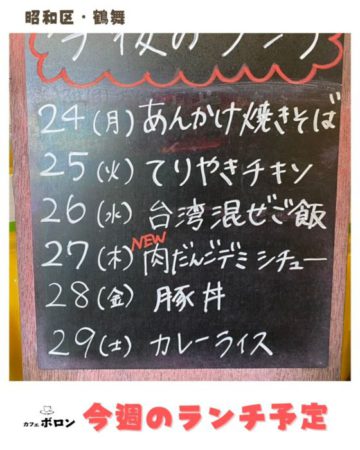 昭和区・鶴舞
今後のランチ
24(月)あんかけ焼きそば
25(火)てりやきチキン
26(水)台湾混ぜご飯
NEW
27(木)肉だんごデミシチュー
28(金)豚丼
29(土)カレーライス
カフェ ボロン
今週のランチ予定